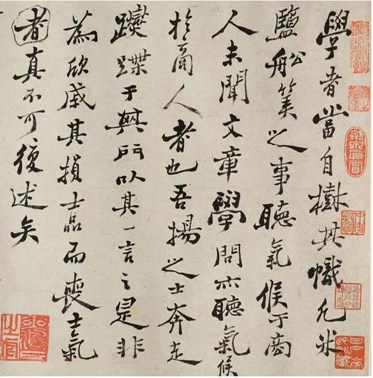 學者當自樹其幟凡米
鹽船筭之事聽氣候于商
人未聞文章學問亦聽氣候
於商人者也吾揚之士奔走
躞蹀于其門以其一言之是非
為欣戚其損士品而喪士氣
者真不可復述矣